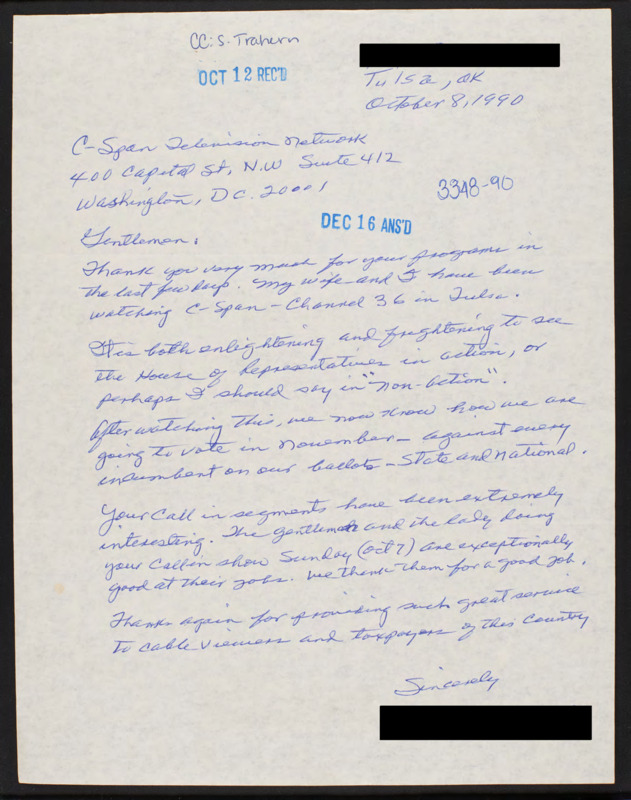 CC: S. Trahern
OCT 12 REC'D
Tulsa, OK
October 8, 1990
C-Span Television Network
400 Capital St, N.W Suite 412
Washington, DC. 20001
3348-90
DEC 16 ANS'D
Gentlemen:
Thank you very much for your programs in
the last few days. My wife and I have been
watching C-Span - Channel 36 in Tulsa.
It is both enlightening and frightening to see
the House of Representatives in action, or
perhaps I should say in "non-action".
After watching this, we now know how we are
going to vote in November - against every
incumbent on our ballots - State and National.
Your Call in segments have been extremely
interesting. The gentleman and the lady doing
your Call in show Sunday (Oct 7) are exceptionally
good at their jobs. We thank them for a good job.
Thanks again for providing such great service
to cable viewers and taxpayers of this Country
Sincerely